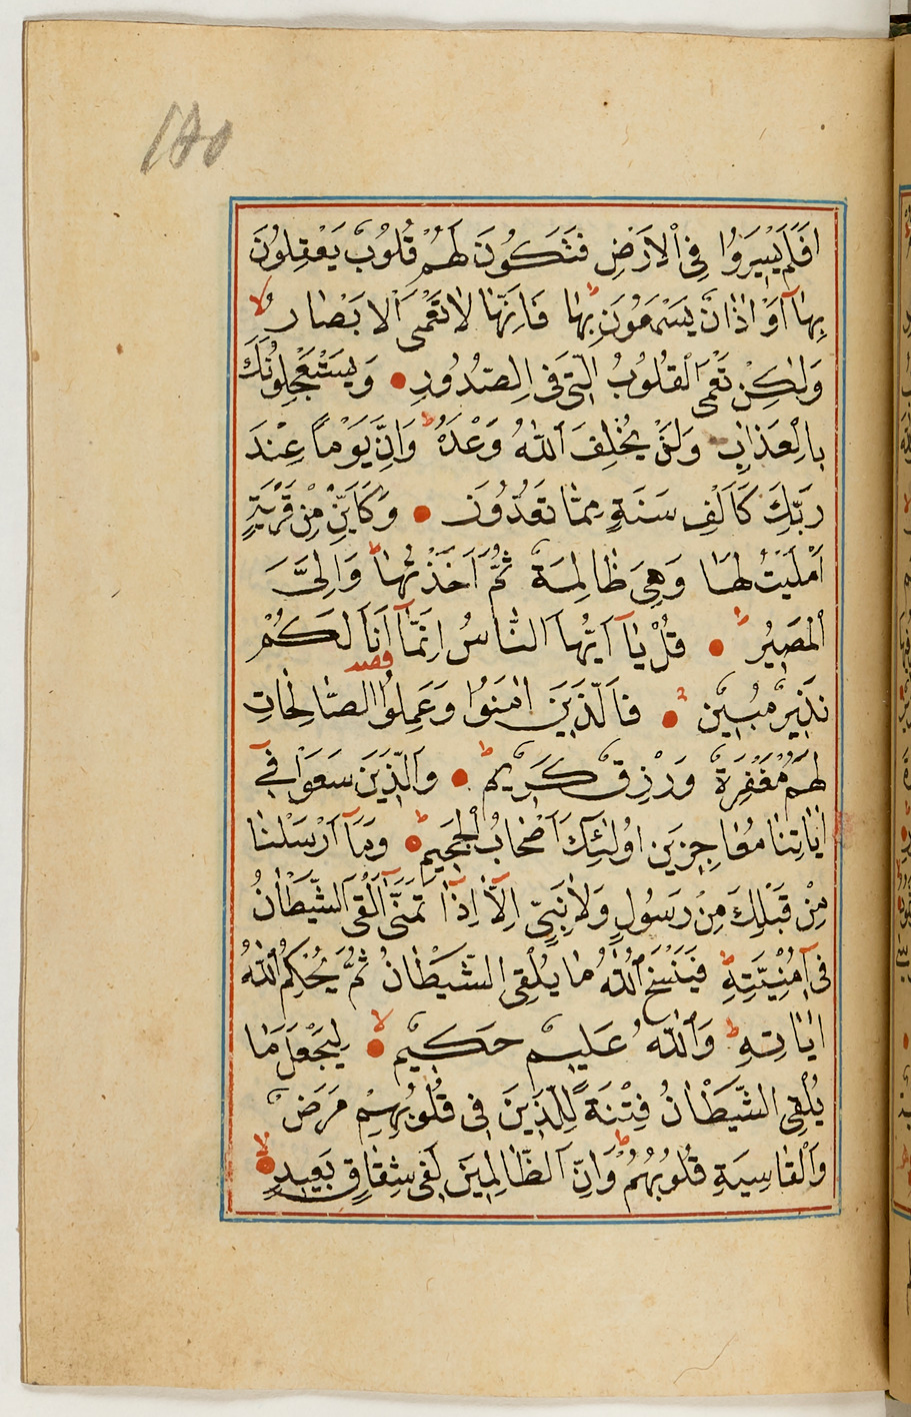 ١٨٥
اَفَلَمْ يَسِيرُوا فِى الْاَرْضِ فَتَكُونَ لَهُمْ قُلُوبٌ يَعْقِلُونَ
بِهَٓا اَوْ اٰذَانٌ يَسْمَعُونَ بِهَاۚ ط فَاِنَّهَا لَا تَعْمَى الْاَبْصَارُ لا
وَلٰكِنْ تَعْمَى الْقُلُوبُ الَّتِى فِى الصُّدُورِ وَيَسْتَعْجِلُونَكَ
بِالْعَذَابِ وَلَنْ يُخْلِفَ اللّٰهُ وَعْدَهُ ط وَاِنَّ يَوْمًا عِنْدَ
رَبِّكَ كَاَلْفِ سَنَةٍ مِمَّا تَعُدُّونَ وَكَاَيِّنْ مِنْ قَرْيَةٍ
اَمْلَيْتُ لَهَا وَهِىَ ظَالِمَةٌ ثُمَّ اَخَذْتُهَا ط وَاِلَىَّ
الْمَصِيرُ ط قُلْ يَٓا اَيُّهَا النَّاسُ اِنَّمَٓا اَنَا لَكُمْ
نَذِيرٌ مُبِينٌ فَالَّذِينَ اٰمَنُوا وَعَمِلُوا الصَّالِحَاتِ
لَهُمْ مَغْفِرَةٌ وَرِزْقٌ كَرِيمٌ ط وَالَّذِينَ سَعَوْا فِٓى
اٰيَاتِنَا مُعَاجِزِينَ اُولٰئِكَ اَصْحَابُ الْجَحِيمِ ط وَمَٓا اَرْسَلْنَا
مِنْ قَبْلِكَ مِنْ رَسُولٍ وَلَا نَبِىٍّ اِلَّٓا اِذَا تَمَنّٰٓى اَلْقَى الشَّيْطَانُ
فِٓى اُمْنِيَّتِهِ ط فَيَنْسَخُ اللّٰهُ مَا يُلْقِى الشَّيْطَانُ ثُمَّ يُحْكِمُ اللّٰهُ
اٰيَاتِهِ ط وَاللّٰهُ عَلِيمٌ حَكِيمٌ لا لِيَجْعَلَ مَا
يُلْقِى الشَّيْطَانُ فِتْنَةً لِلَّذِينَ فِى قُلُوبِهِمْ مَرَضٌ
وَالْقَاسِيَةِ قُلُوبُهُمْ ط وَاِنَّ الظَّالِمِينَ لَفِى شِقَاقٍ بَعِيدٍ لا